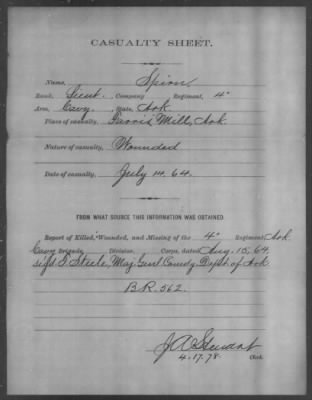 CASUALTY SHEET.
Name, Spion
Rank, Lieut. Company Regiment, 4"
Arm, Cavy. State, Ark.
Place of casualty, Farris Mill, Ark.
Nature of casualty, Wounded
Date of casualty, July 14, 64.
FROM WHAT SOURCE THIS INFORMATION WAS OBTAINED.
Report of Killed, Wounded, and Missing of the 4" Regiment, Ark
Cavy Brigade, Division, Corps, dated Aug. 15, 64
sigd F. Steele, Maj. Genl Comdg Dept. of Ark
B.R. 562.
J.A. Stewart
4.17.78. Clerk.